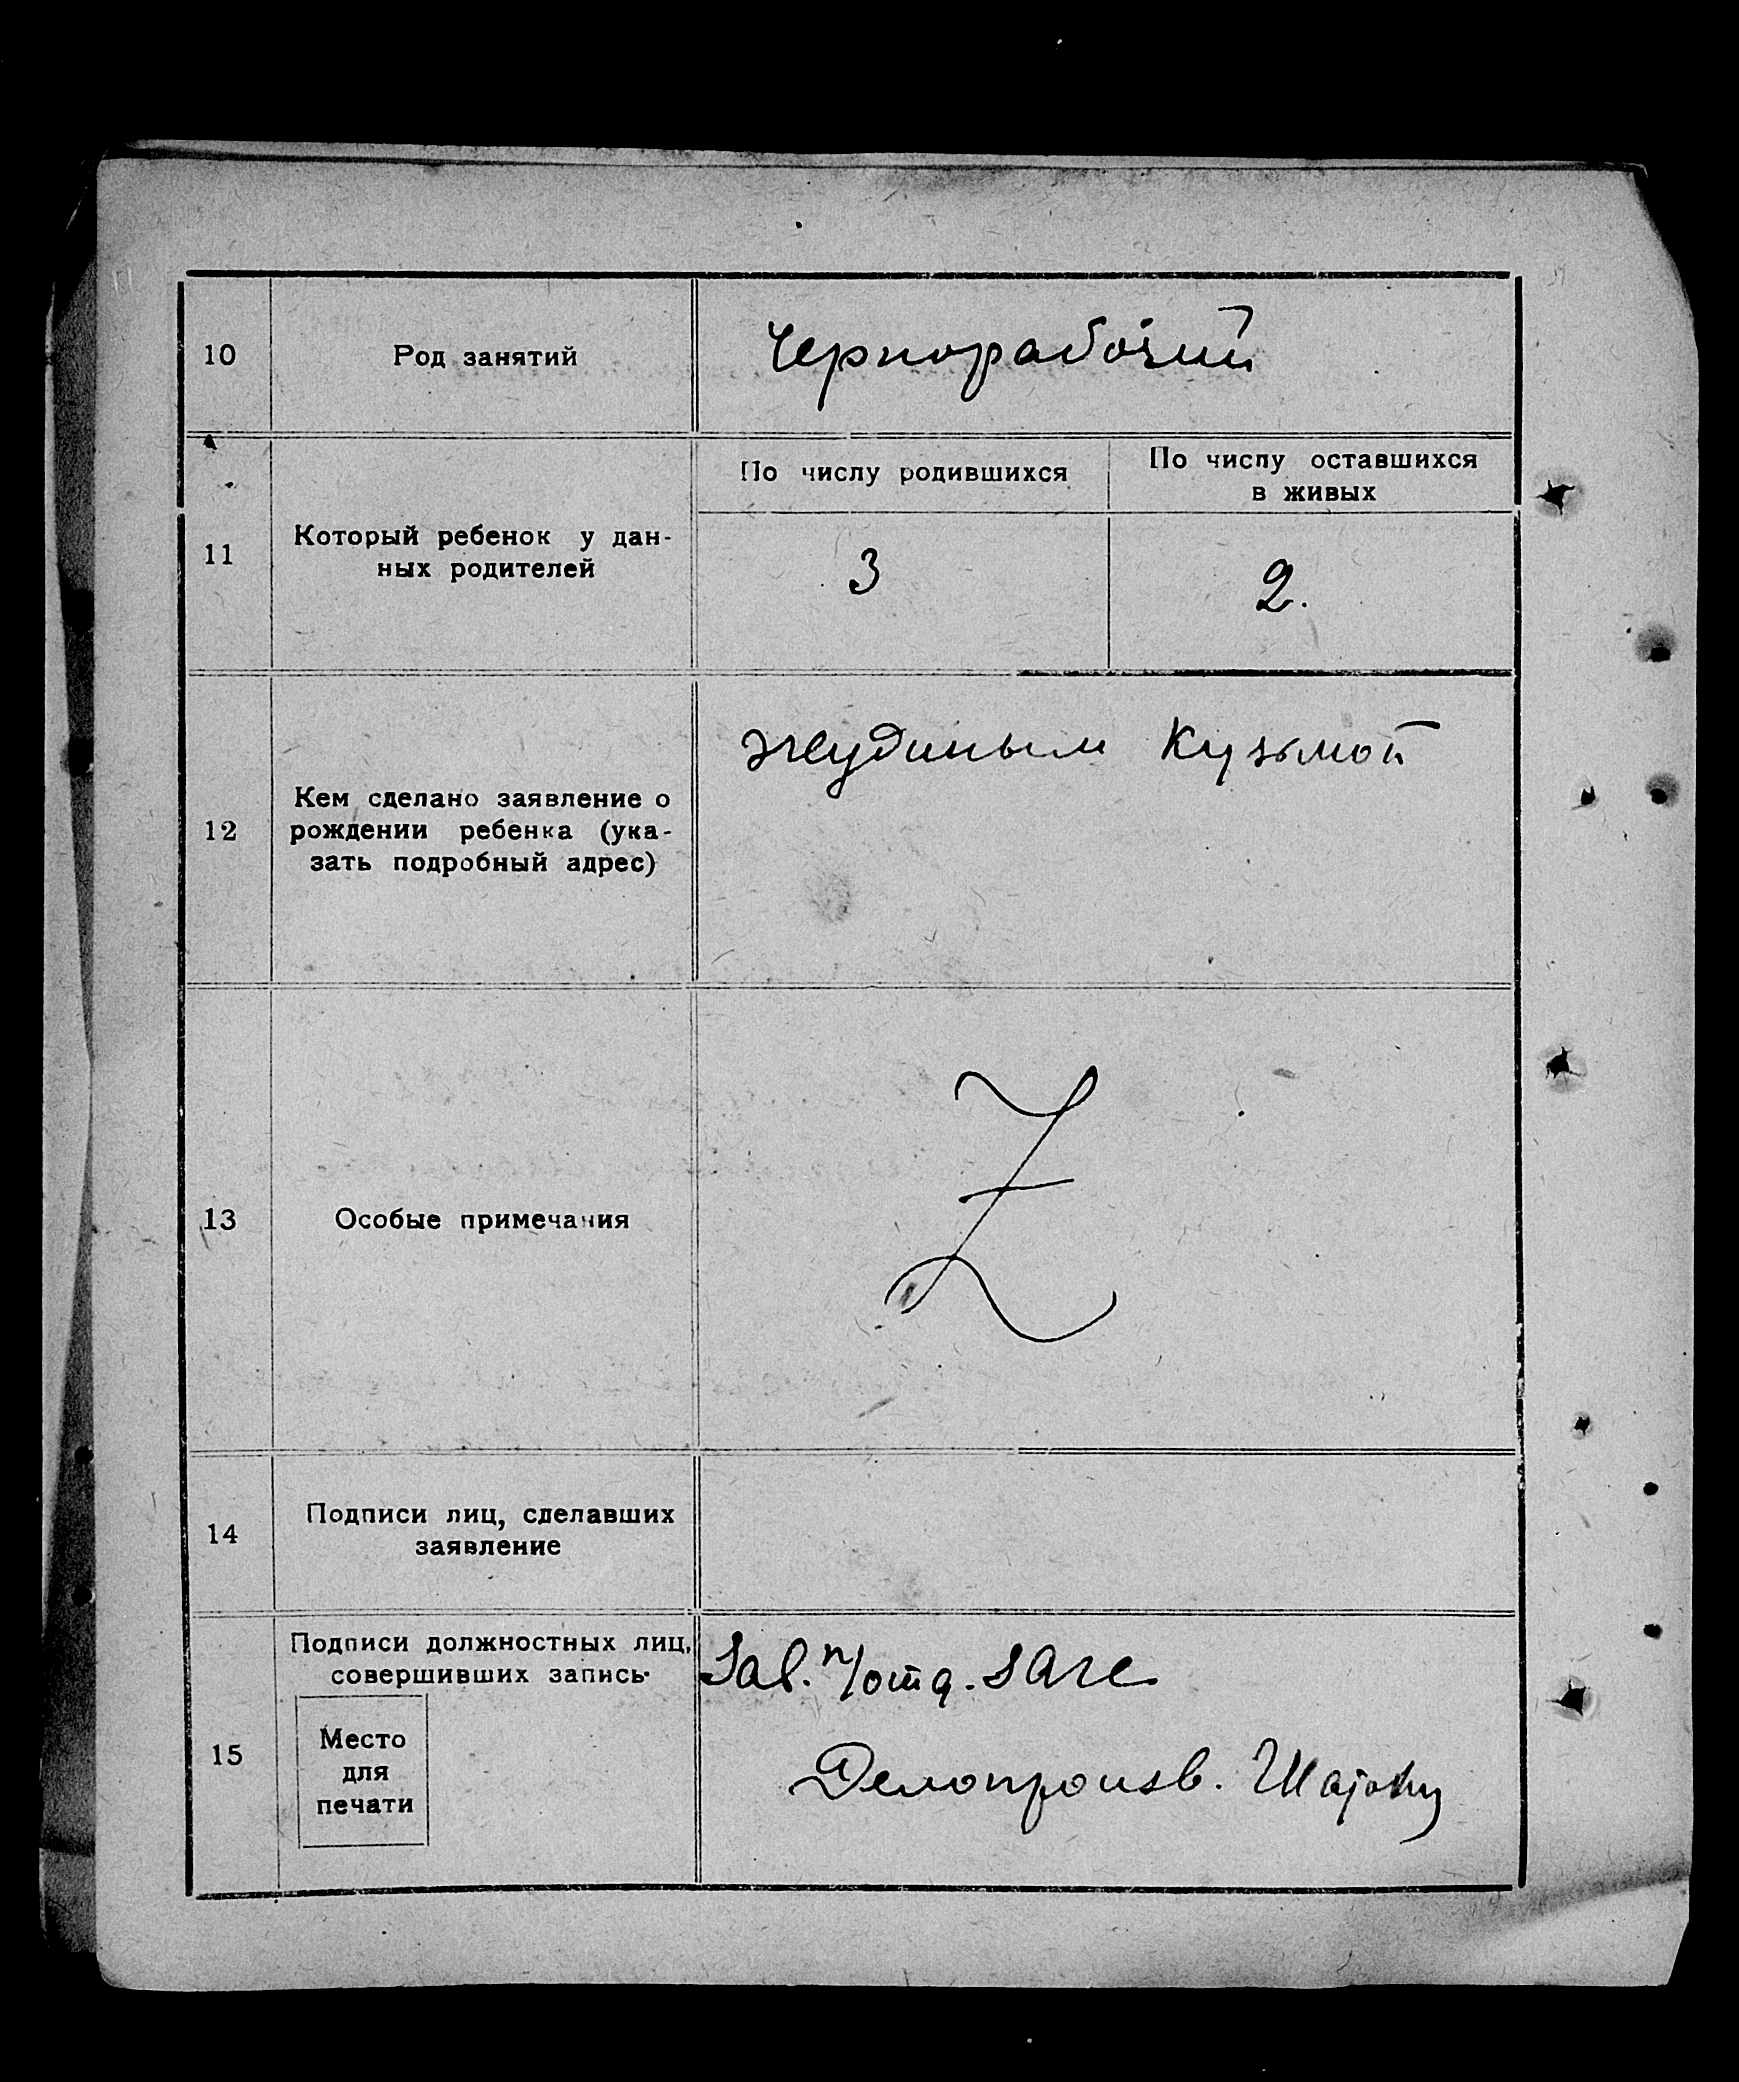 10 Род занятий Чернорабочий
По числу родившихся По числу оставшихся
в живых
11 Который ребенок у дан-
ных родителей 3 2.
Кузьмой
12 Кем сделано заявление о
рождении ребенка (ука-
зать подробный адрес)
13 Особые примечания Z
14 Подписи лиц, сделавших
заявление
15 Подписи должностных лиц,
совершивших запись.
Зав. п/отд. ЗАГС
Место
для
печати
Делопроизв.